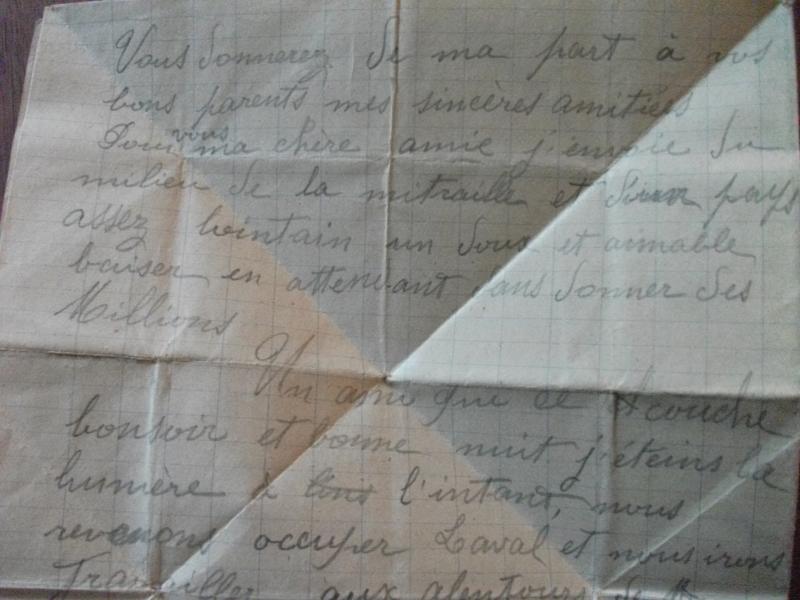 Vous donnerez de ma part à vos
bons parents mes sincères amitiées
Pour vous ma chère amie j'envoie du
milieu de la mitraille et d'un pays
assez lointain un doux et aimable
baiser en attendant sans donner des
Millions
Un ami que ce couche
bonsoir et bonne nuit j'éteins la
lumière à l'intant, nous
revenons occuper Laval et nous irons
Travailler aux alentours de